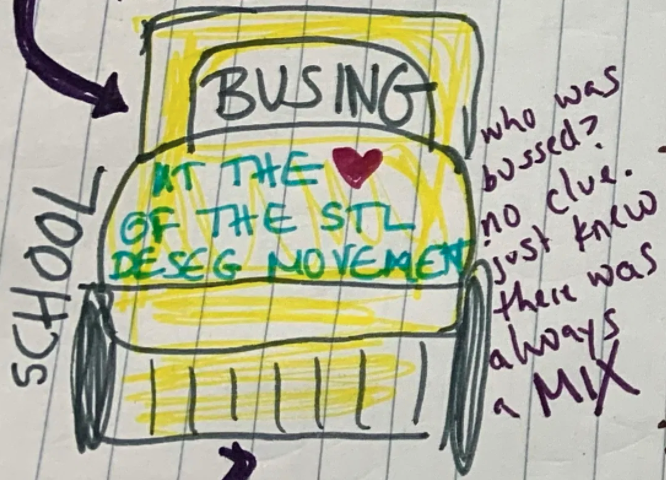 BUSING
AT THE ❤
OF THE STL
DESEG MOVEMENT
SCHOOL
who was
bussed?
no clue.
just knew
there was
always
a MIX